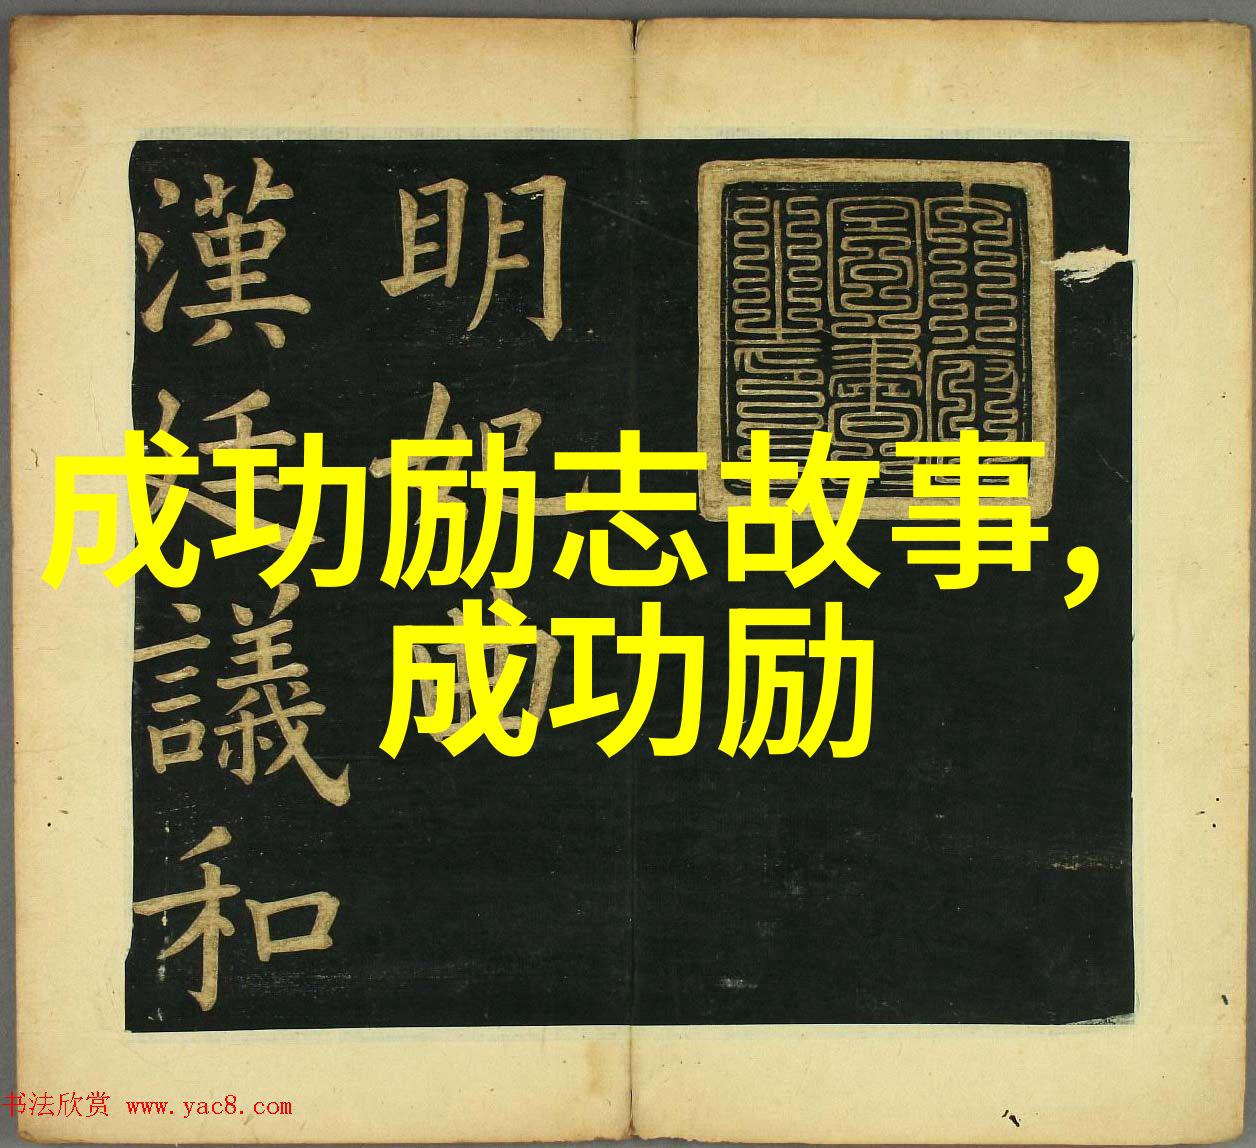 明妃曲
漢廷議和
成功励志故事,
成功励
书法欣赏 www.yac8.com